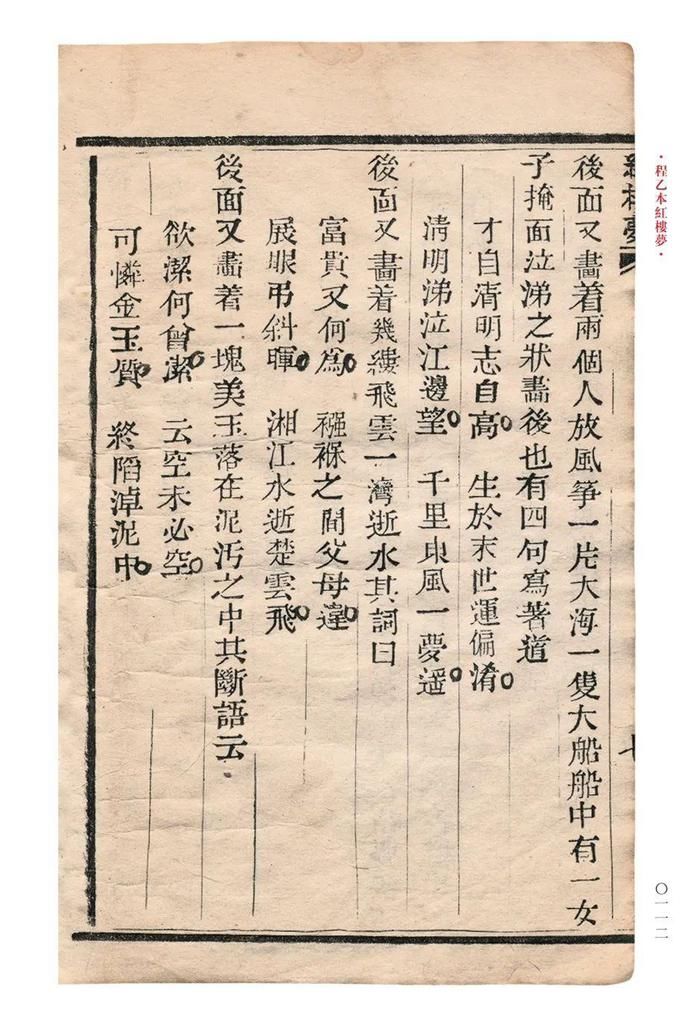 ·程乙本紅樓夢·
後面又畵着兩個人放風箏一片大海一隻大船船中有一女
子掩面泣涕之狀畵後也有四句寫著道
才自清明志自高。 生於末世運偏淆。
清明涕泣江邊望。 千里東風一夢遥。
後面又畵着幾縷飛雲一灣逝水其詞曰
富貴又何爲。 襁褓之間父母違。
展眼弔斜暉。 湘江水逝楚雲飛。
後面又畵着一塊美玉落在泥汚之中其斷語云
欲潔何曾潔。 云空未必空。
可憐金玉質。 終陷淖泥中。
〇一一二